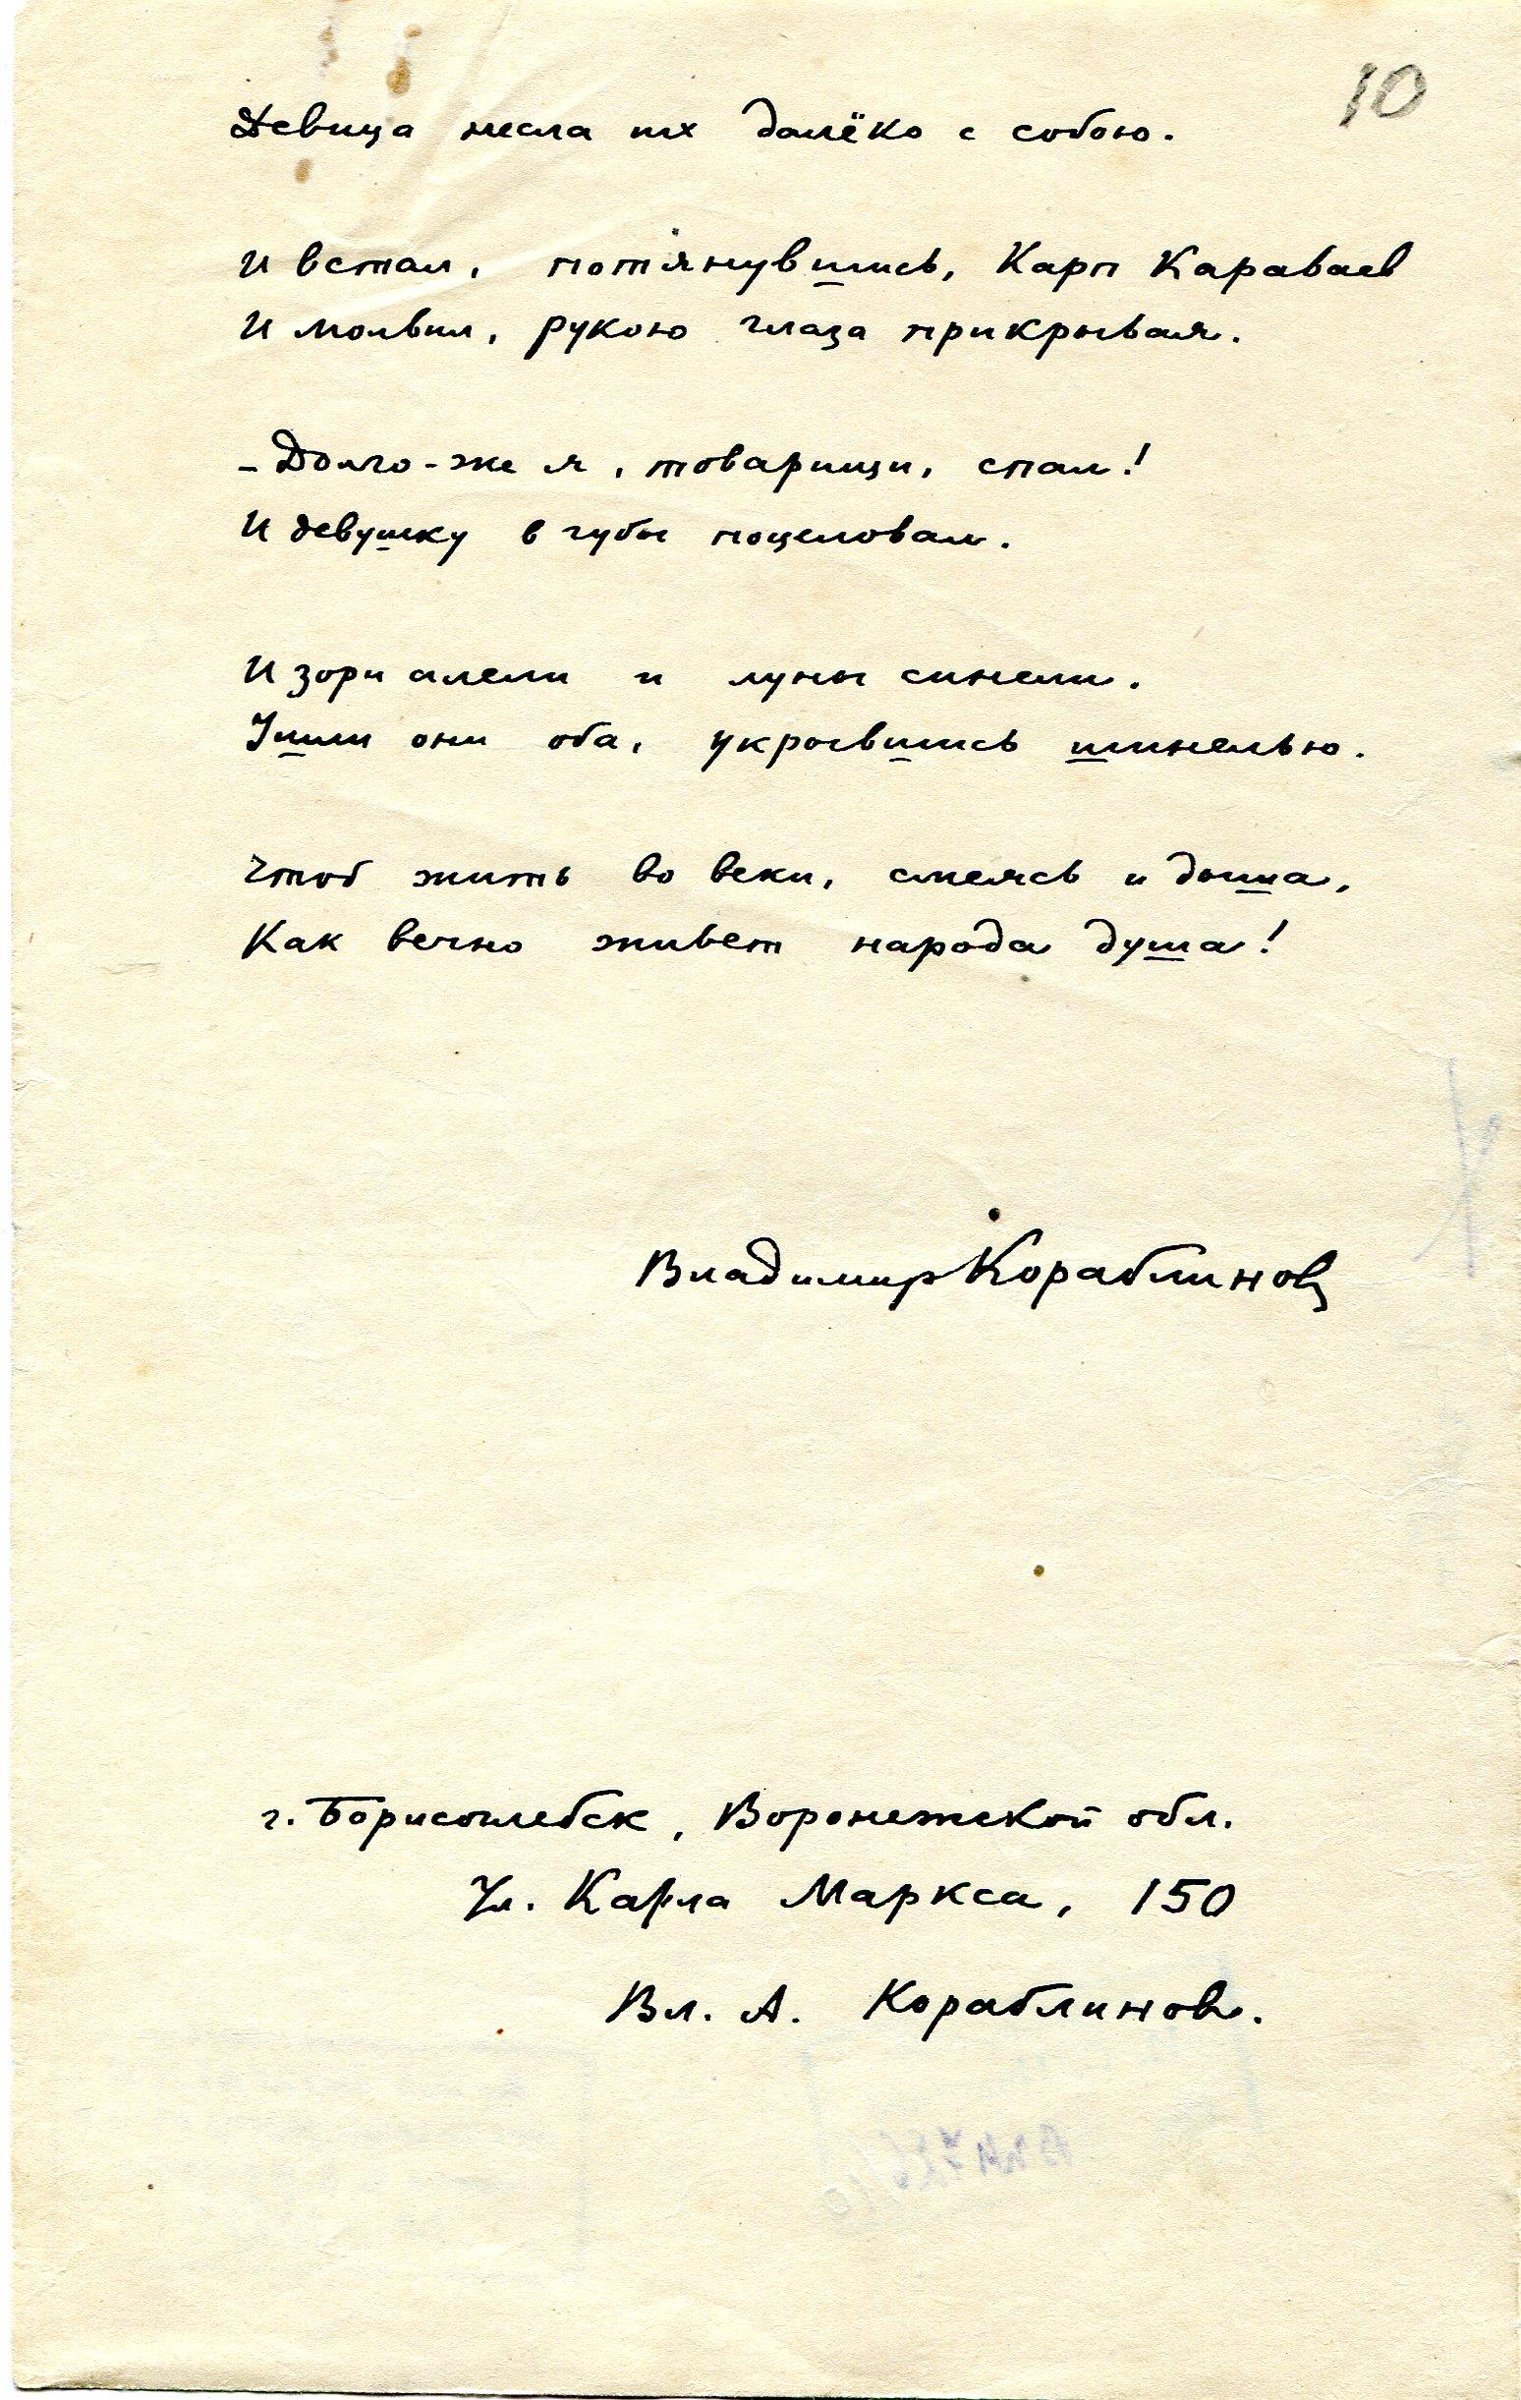 10
Девица несла их далёко с собою.
И встал, потянувшись, Карп Караваев
И молвил, рукою глаза прикрывая.
– Долго-же я, товарищи, спал!
И девушку в губы поцеловал.
И зори алели и луны синели.
Ушли они оба, укрывшись шинелью.
Чтоб жить во веки, смеясь и дыша,
Как вечно живет народа душа!
Владимир Кораблинов
г. Борисоглебск, Воронежской обл.
Ул. Карла Маркса, 150
Вл. А. Кораблинов.